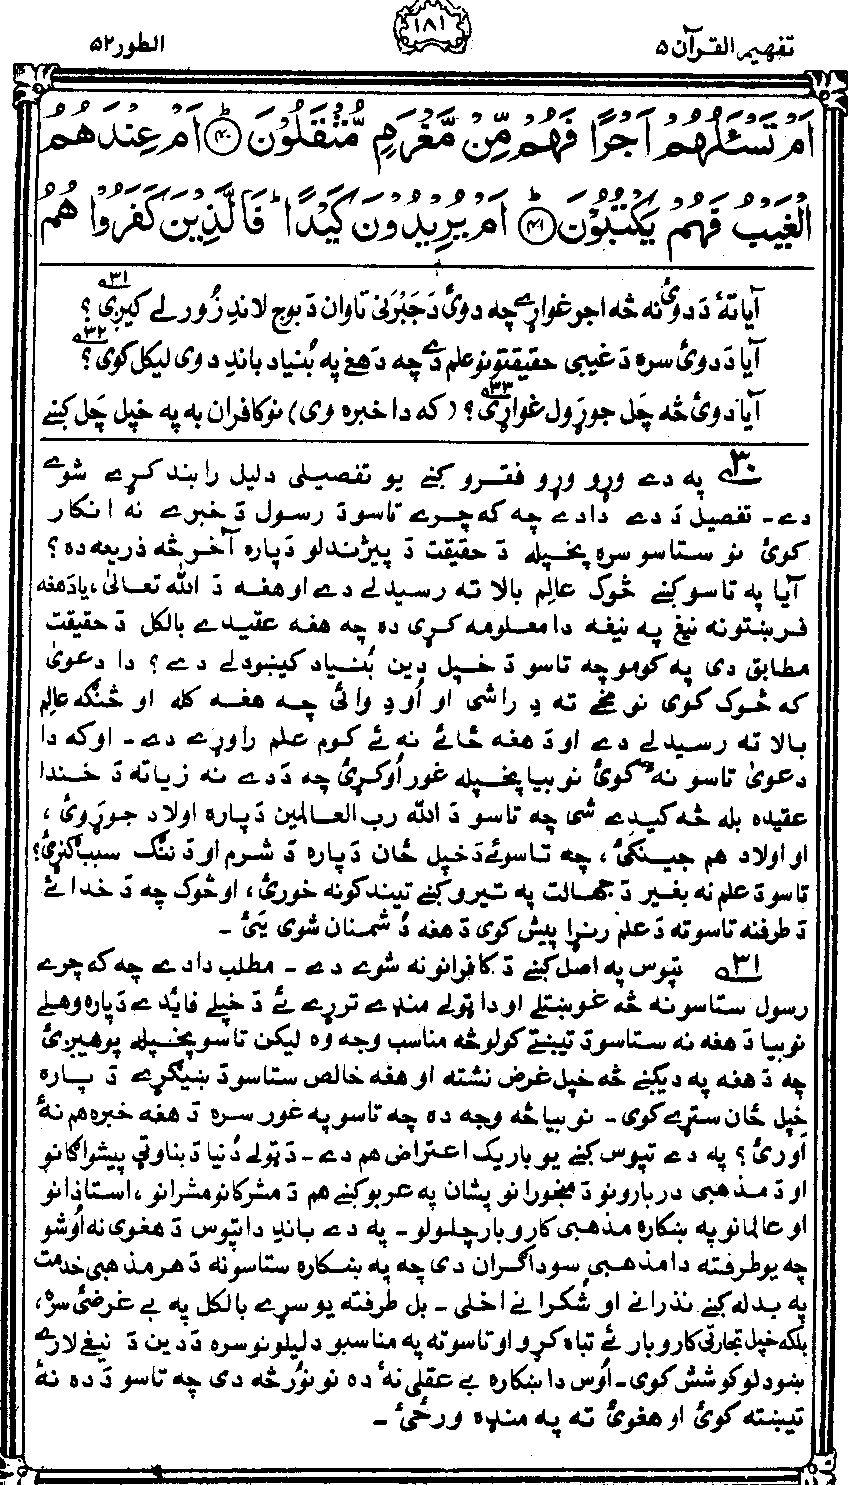 تفهیم القرآن ۵
۱۸۱
الطور ۵۲
اَمْ تَسْـَٔلُهُمْ اَجْرًا فَهُمْ مِّنْ مَّغْرَمٍ مُّثْقَلُوْنَ ﴿۴۰﴾ؕ اَمْ عِنْدَهُمُ
الْغَيْبُ فَهُمْ يَكْتُبُوْنَ ﴿۴۱﴾ؕ اَمْ يُرِيْدُوْنَ كَيْدًا ؕ فَالَّذِيْنَ كَفَرُوْا هُمُ
آیا تهٔ دَ دویٔ نه څه اجر غواړے چه دویٔ دَ جَبْرَنیٰ تاوان دَ بوج لاندِ زُور لے کیږی؟ ۳۱
آیا دَ دویٔ سره دَ غیبی حقیقتونو علم دے چه دَ هغے په بُنیاد باندِ دوی لیکل کوی؟ ۳۲
آیا دویٔ څه چَل جوړَول غواړی؟ ۳۳ (که دا خبره وی) نو کافران به په خپل چَل کښے
۳۰ په دے وړو وړو فقرو کښے یو تفصیلی دلیل را بند کړے شوے
دے۔ تفصیل دَ دے دا دے چه که چرے تاسو دَ رسول دَ خبرے نه انکار
کویٔ نو ستاسو سره پخپله دَ حقیقت دَ پیژندلو دَ پاره آخر څه ذریعه ده؟
آیا په تاسو کښے څوک عالمِ بالا ته رسیدلے دے او هغه دَ الله تعالیٰ، یا دَ هغه
فرښتو نه نیغ په نیغه دا معلومه کړی ده چه هغه عقیدے بالکل دَ حقیقت
مطابق دی په کومو چه تاسو دَ خپل دین بُنیاد کیښودلے دے؟ دا دعویٰ
که څوک کوی نو مخے ته دِ راشی او اُو دِ وائی چه هغه کله او څنګه عالمِ
بالا ته رسیدلے دے او دَ هغه ځائے نه ئے کوم علم راوړے دے۔ او که دا
دعویٰ تاسو نه کویٔ نو بیا پخپله غور اُوکړیٔ چه دَ دے نه زیاته دَ خندا
عقیده بله څه کیدے شی چه تاسو دَ الله رب العالمین دَ پاره اولاد جوړویٔ،
او اولاد هم جینکیٔ، چه تاسو ئے دَ خپل ځان دَ پاره دَ شرم او دَ ننګ سبب ګنړیٔ؟
تاسو دَ علم نه بغیر دَ جهالت په تیرو کښے تیندکونه خوریٔ، او څوک چه دَ خدائے
دَ طرفنه تاسو ته دَ علم رنړا پیش کوی دَ هغه دُشمنان شوی یٔی۔
۳۱ تپوس په اصل کښے دَ کافرانو نه شوے دے۔ مطلب دا دے چه که چرے
رسول ستاسو نه څه غوښتلے او دا ټولے منډے تررے ئے دَ خپلے فایٔدے دَ پاره وهلے
نو بیا دَ هغه نه ستاسو دَ تیښتے کولو څه مناسب وجه وه لیکن تاسو پخپله پوهیږیٔ
چه دَ هغه په دیکښے څه خپل غرض نشته او هغه خالص ستاسو دَ ښیګړے دَ پاره
خپل ځان ستړے کوی۔ نو بیا څه وجه ده چه تاسو په غور سره دَ هغه خبره هم نهٔ
آوریٔ؟ په دے تپوس کښے یو باریک اعتراض هم دے۔ دَ ټولے دُنیا دَ بناوټی پیشواګانو
او دَ مذهبی دربارونو دَ مجاورانو پشان په عربو کښے هم دَ مشرکانو مشرانو، استاذانو
او عالمانو په ښکاره مذهبی کاروبار چلولو۔ په دے باندِ دا تپوس دَ هغوی نه اُوشو
چه یو طرفته دا مذهبی سوداګران دی چه په ښکاره ستاسو نه دَ هر مذهبی خدمت
په بدله کښے نذرانے او شُکرانے اخلی۔ بل طرفته یو سړے بالکل په بے غرضیٔ سره،
بلکه خپل تجارتی کاروبار ئے تباه کړو او تاسو ته په مناسبو دلیلونو سره دَ دین دَ نیغے لارے
ښودلو کوشش کوی۔ اُوس دا ښکاره بے عقلی نهٔ ده نو نور څه دی چه تاسو دَ ده نه
تیښته کویٔ او هغویٔ ته په منډه ورځیٔ۔